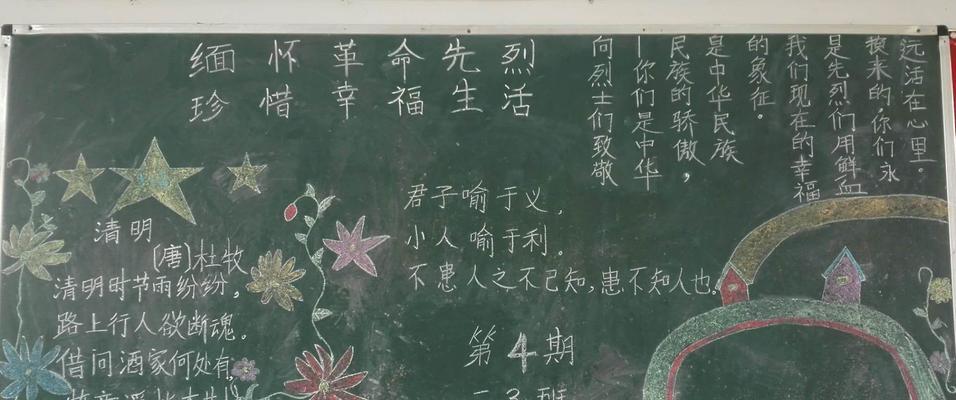 缅怀革命先烈
珍惜幸福生活
向烈士们致敬
—你们是中华
民族的骄傲，
是中华民族
的象征。
我们现在的幸福
是先烈们用鲜血
换来的.你们永
远活在心里。
清明
[唐]杜牧
清明时节雨纷纷，
路上行人欲断魂。
借问酒家何处有，
君子喻于义，
小人喻于利。
不患人之不己知，患不知人也。
第4期